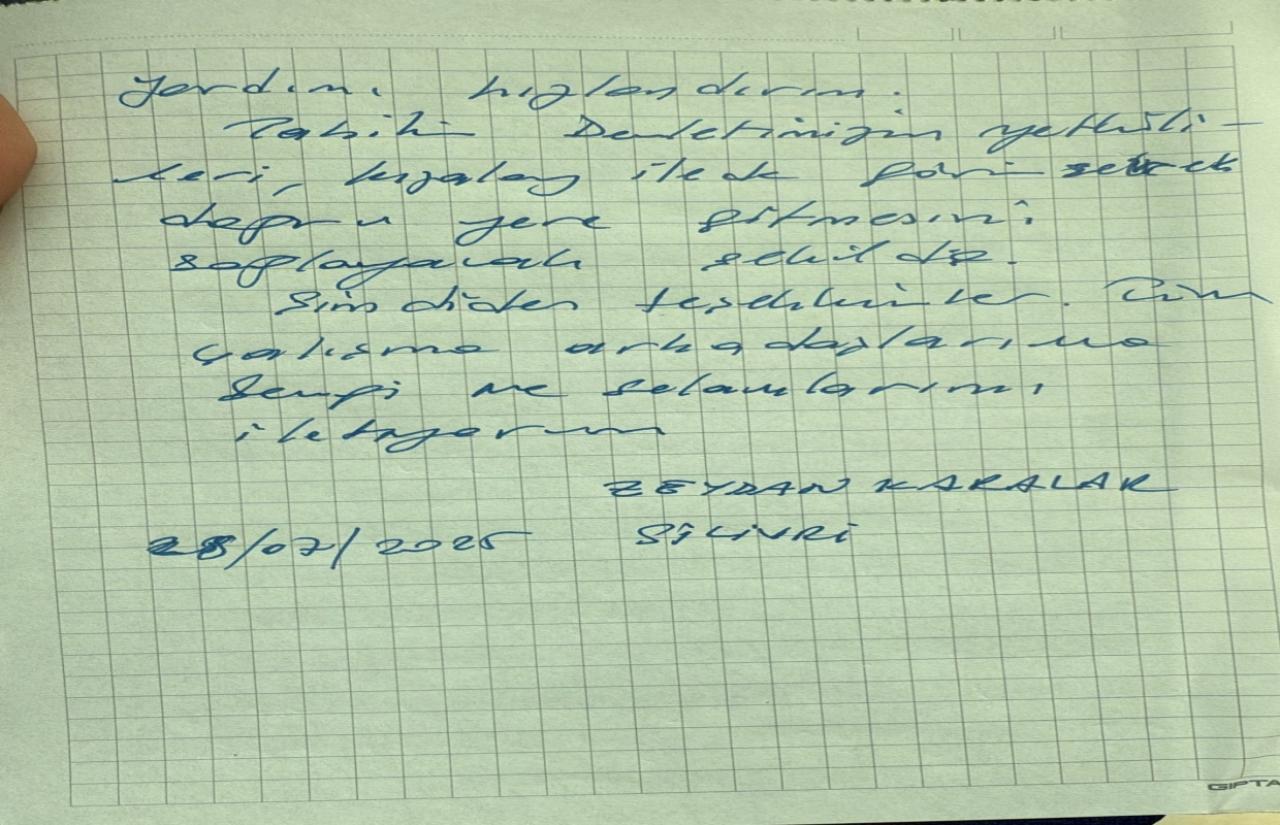 yardımı hızlandırın.
Tabiki Devletimizin yetkili-
leri, Kızalay ile de görüşerek
doğru yere gitmesini
sağlayacak şekilde.
Şimdiden teşekkürler. Tüm
çalışma arkadaşlarıma
Sevgi ve selamlarımı
iletiyorum
ZEYDAN KARALAR
28/07/2025 SİLİVRİ
GIPTA